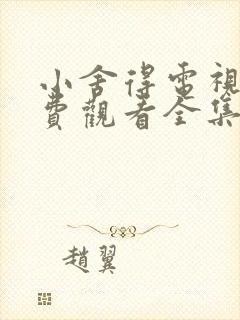 小舍得電視
費觀看全集
趙翼